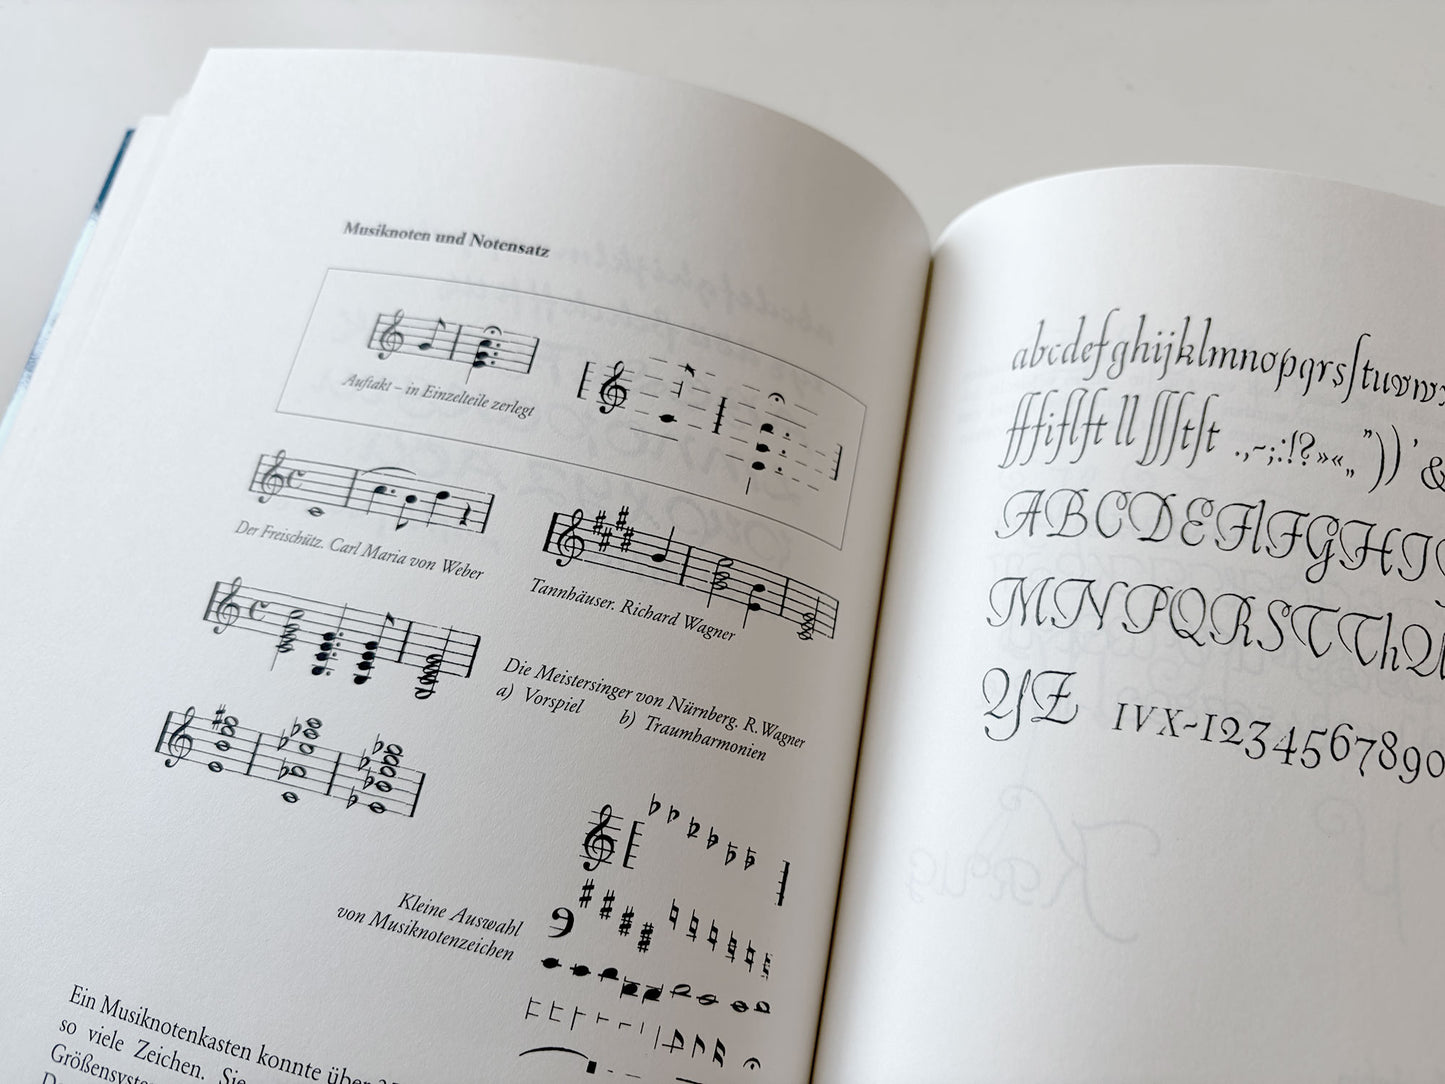 Musiknoten und Notensatz
Auftakt – in Einzelteile zerlegt
Der Freischütz. Carl Maria von Weber
Tannhäuser. Richard Wagner
Die Meistersinger von Nürnberg. R. Wagner
a) Vorspiel b) Traumharmonien
Kleine Auswahl
von Musiknotenzeichen
Ein Musiknotenkasten konnte über
so viele Zeichen. Sie
abcdefghijklmnopqrsſtuvw
.,~;:!?»«„”))’&
ABCDEFlFGHI
MNPQRSTTh
YZ IVX-1234567890